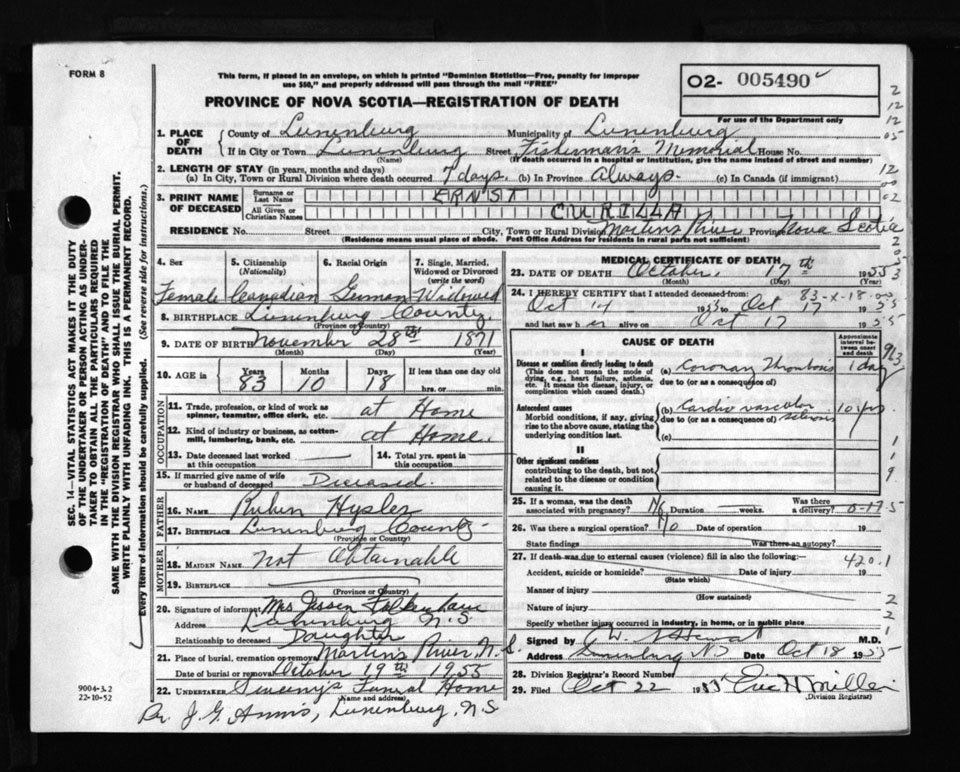 FORM 8
This form, if placed in an envelope, on which is printed "Dominion Statistics—Free, penalty for improper
use $50," and properly addressed will pass through the mail "FREE"
02- 005490
For use of the Department only
PROVINCE OF NOVA SCOTIA—REGISTRATION OF DEATH
1. PLACE OF DEATH County of Lunenburg Municipality of Lunenburg
If in City or Town Lunenburg Street Fisherman's Memorial House No.
(Name) (If death occurred in a hospital or institution, give the name instead of street and number)
2. LENGTH OF STAY (in years, months and days)
(a) In City, Town or Rural Division where death occurred 7 days. (b) In Province Always. (c) In Canada (if immigrant)
3. PRINT NAME OF DECEASED Surname or Last Name ERNST
All Given or Christian Names CURILLA
RESIDENCE No. Street City, Town or Rural Division Martins River Province Nova Scotia
(Residence means usual place of abode. Post Office Address for residents in rural parts not sufficient)
4. Sex 5. Citizenship (Nationality) 6. Racial Origin 7. Single, Married, Widowed or Divorced (write the word)
Female Canadian German Widowed
8. BIRTHPLACE Lunenburg County
(Province or Country)
9. DATE OF BIRTH November 28th 1871
(Month) (Day) (Year)
10. AGE in Years Months Days If less than one day old
83 10 18 hrs. or min.
OCCUPATION
11. Trade, profession, or kind of work as spinner, teamster, office clerk, etc. at Home
12. Kind of industry or business, as cotton-mill, lumbering, bank, etc. at Home.
13. Date deceased last worked at this occupation 14. Total yrs. spent in this occupation
15. If married give name of wife or husband of deceased Deceased.
FATHER
16. Name Rubin Hysler
17. BIRTHPLACE Lunenburg County
(Province or Country)
MOTHER
18. MAIDEN NAME Not Obtainable
19. BIRTHPLACE
(Province or Country)
20. Signature of informant Mrs
Address Lunenburg N.S.
Relationship to deceased Daughter
21. Place of burial, cremation or removal Martins River N.S.
Date of burial or removal October 19th 1955
22. UNDERTAKER Sweeny's Funeral Home
(Name and address)
Dr. J. G. Annis, Lunenburg, N.S
MEDICAL CERTIFICATE OF DEATH
23. DATE OF DEATH October. 17th 1955
(Month) (Day) (Year)
83-X-18
24. I HEREBY CERTIFY that I attended deceased from:
Oct 14 1955 to Oct 17 1955
and last saw her alive on Oct 17 1955
CAUSE OF DEATH
Approximate interval between onset and death
I
Disease or condition directly leading to death
(This does not mean the mode of dying, e.g., heart failure, asthenia, etc. It means the disease, injury, or complication which caused death.)
(a) Coronary Thrombosis 1 day
due to (or as a consequence of)
Antecedent causes
Morbid conditions, if any, giving rise to the above cause, stating the underlying condition last.
(b) Cardio vascular 10 yrs
due to (or as a consequence of)
(c)
II
Other significant conditions
contributing to the death, but not related to the disease or condition causing it.
25. If a woman, was the death associated with pregnancy? No Duration weeks. Was there a delivery?
26. Was there a surgical operation? No Date of operation 19
State findings Was there an autopsy?
27. If death was due to external causes (violence) fill in also the following:
420.1
Accident, suicide or homicide? Date of injury 19
(State which)
Manner of injury
(How sustained)
Nature of injury
Specify whether injury occurred in industry, in home, or in public place
Signed by M.D.
Address Lunenburg NS Date Oct 18 1955
28. Division Registrar's Record Number
29. Filed Oct 22 1955 Eric H Miller
(Division Registrar)
9004-3.2
22-10-52
SEC. 14—VITAL STATISTICS ACT MAKES IT THE DUTY
OF THE UNDERTAKER OR PERSON ACTING AS UNDER-
TAKER TO OBTAIN ALL THE PARTICULARS REQUIRED
IN THE "REGISTRATION OF DEATH" AND TO FILE THE
SAME WITH THE DIVISION REGISTRAR WHO SHALL ISSUE THE BURIAL PERMIT.
WRITE PLAINLY WITH UNFADING INK. THIS IS A PERMANENT RECORD.
Every item of information should be carefully supplied. (See reverse side for instructions.)